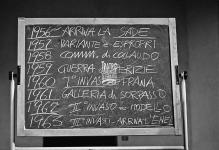 1956 ARRIVA LA SADE
1957 VARIANTE e ESPROPRI
1958 COMM. di COLLAUDO
1959 GUERRA PERIZIE
1960 I° INVASO FRANA
1961 GALLERIA di SORPASSO
1962 II° INVASO MODELLO
1963 III° INVASO ARRIVA L'ENEL